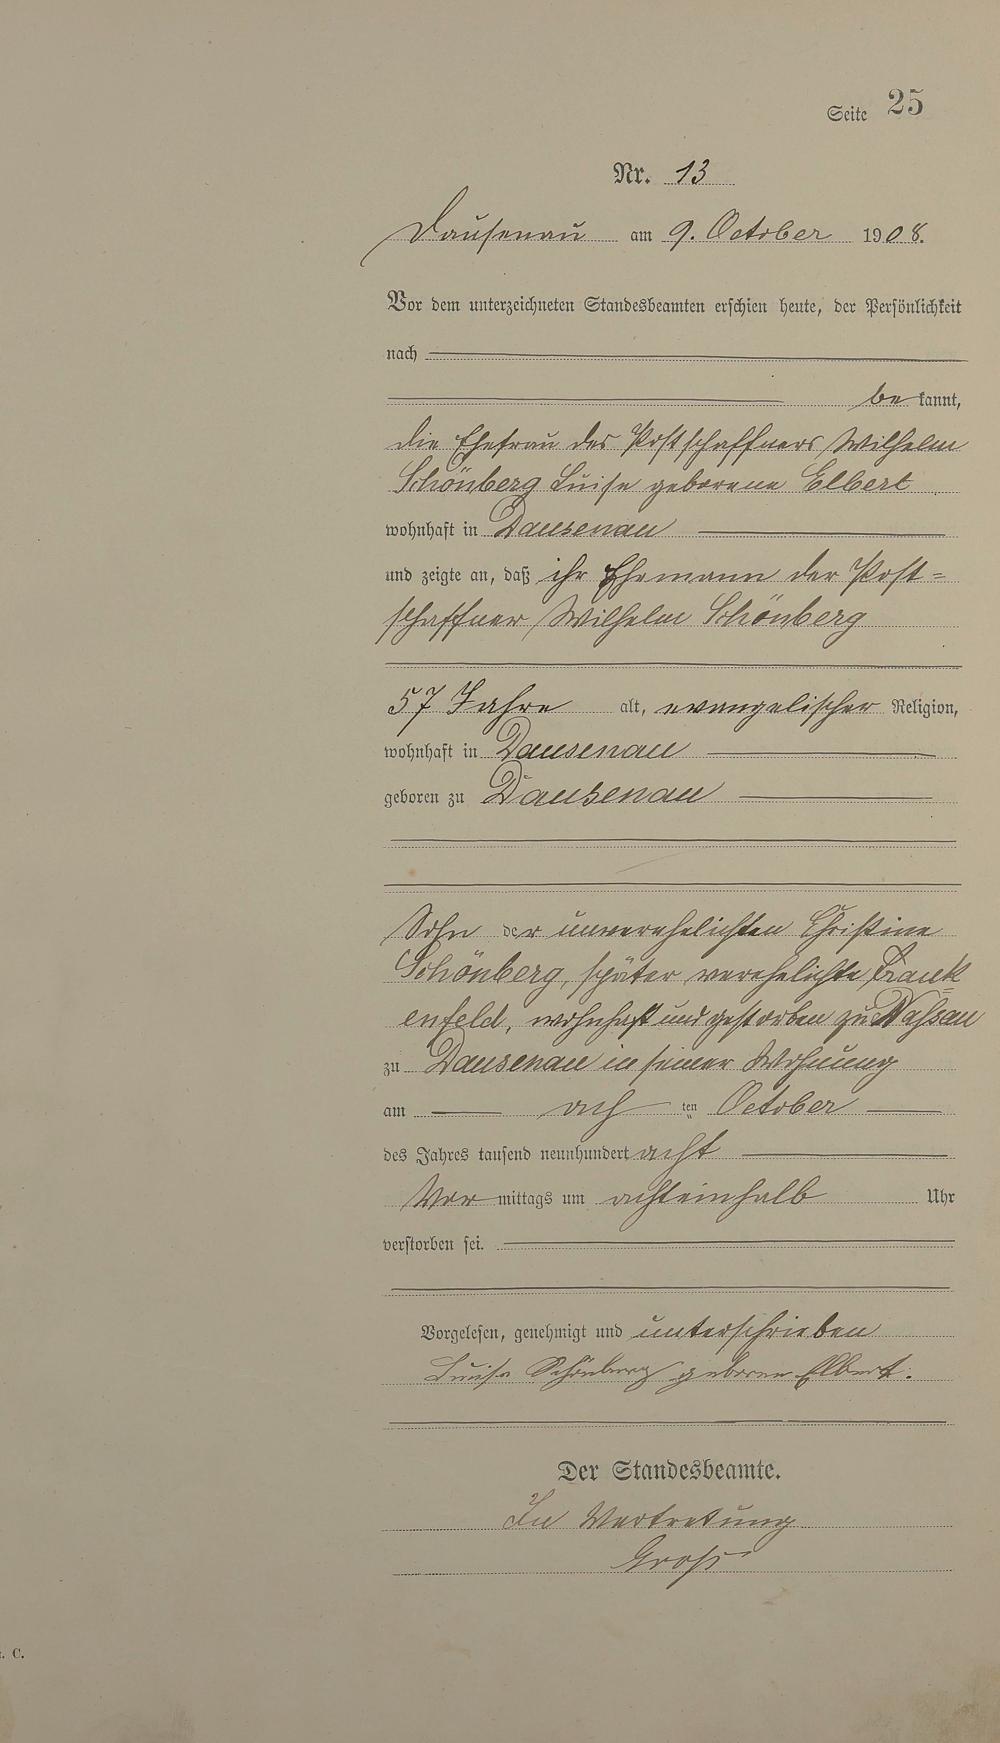 Seite 25
Nr. 13
Dausenau am 9. October 1908.
Vor dem unterzeichneten Standesbeamten erschien heute, der Persönlichkeit
nach
be kannt,
die Ehefrau des Postschaffners Wilhelm
Schönberg Luise geborene Elbert
wohnhaft in Dausenau
und zeigte an, daß ihr Ehemann der Post=
schaffner Wilhelm Schönberg
57 Jahre alt, evangelischer Religion,
wohnhaft in Dausenau
geboren zu Dausenau
Sohn der unverehelichten Christine
Schönberg, später verehelichte Frank=
enfeld, wohnhaft und gestorben zu Nassau
zu Dausenau in seiner Wohnung
am ach ten October
des Jahres tausend neunhundert acht
Vor mittags um achteinhalb Uhr
verstorben sei.
Vorgelesen, genehmigt und unterschrieben
Luise Schönberg geborene Elbert.
Der Standesbeamte.
In Vertretung
Groß
. C.